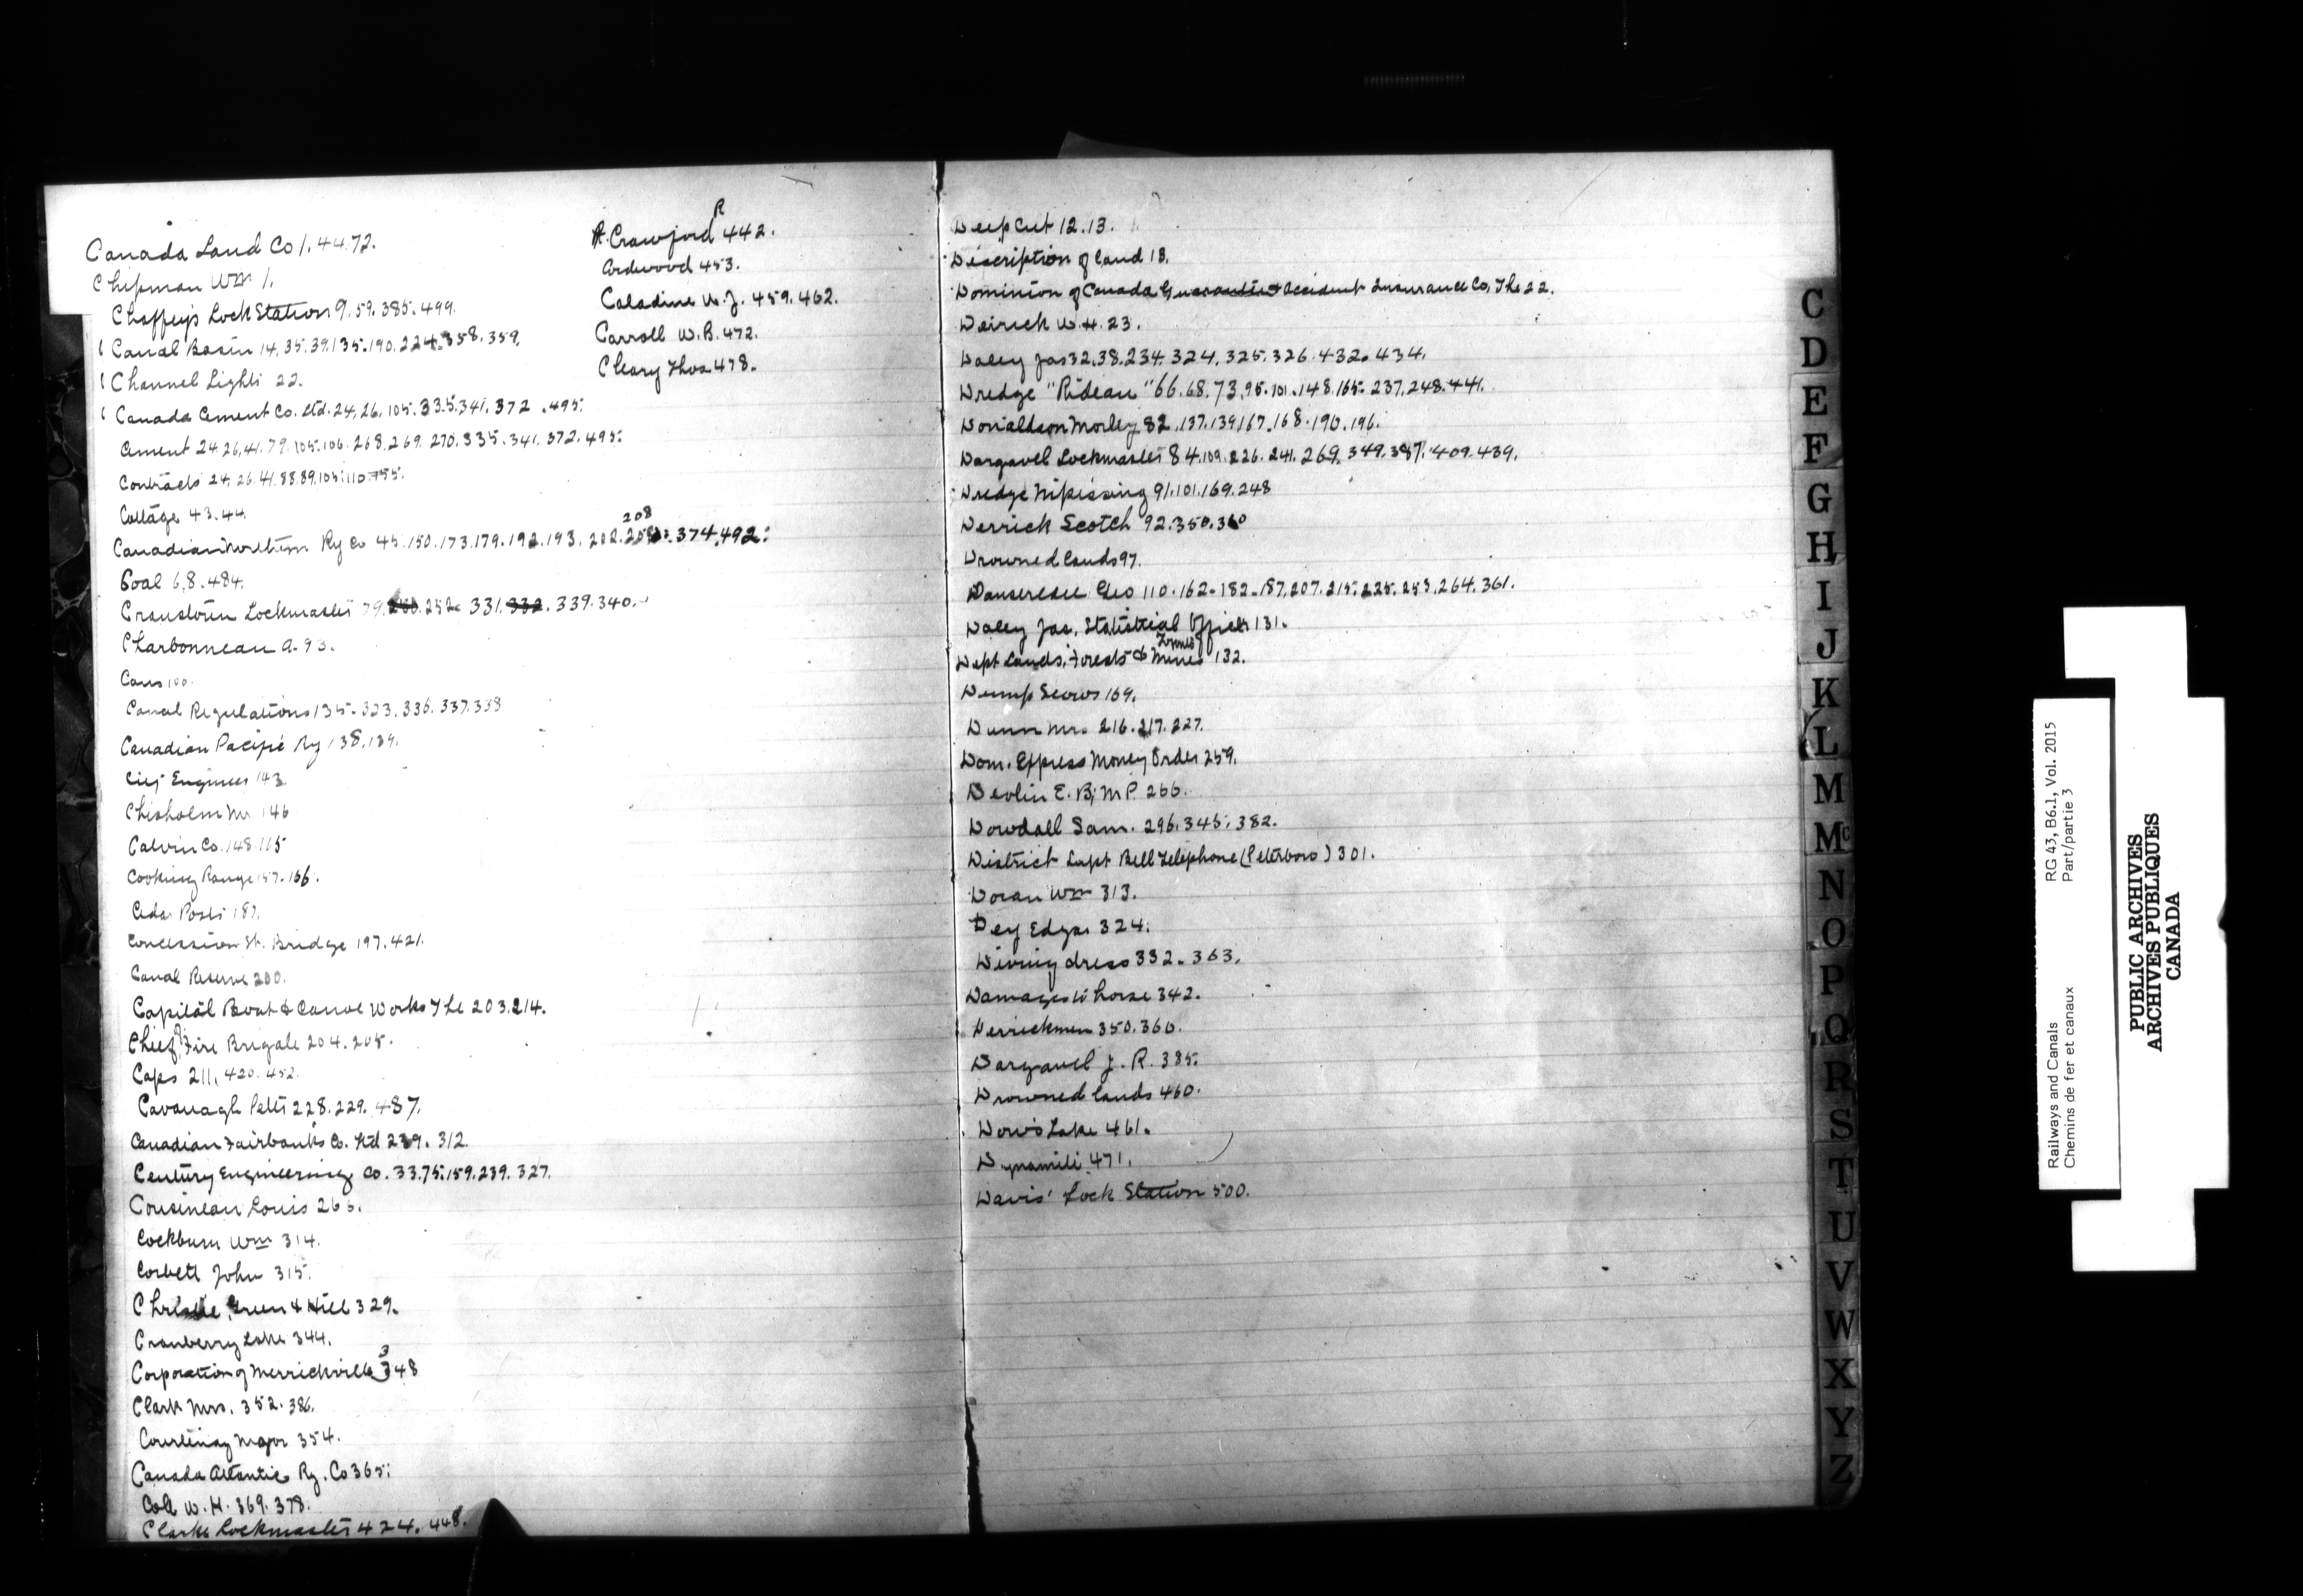 Canada Land Co 1.44.72.
Chipman Wm 1.
Chaffey's Lock Station 9.59.385.499.
Canal Basin 14.35.39.135.190.224.358.359.
Channel Lights 22.
Canada Cement Co. Ltd. 24.26.105.335.341.372.495.
Cement 24.26.41.79.105.106.268.269.270.335.341.372.495.
Contracts 24.26.41.88.89.105.110.
Cottage 43.44.
Canadian Northern Ry Co 45.150.173.179.192.193.202. 208 374.492.
Coal 68.484.
Cranstoun Lockmaster 79. 252. 331. 332. 339.340.
Charbonneau A. 93.
Cans 100.
Canal Regulations 135.323.336.337.338
Canadian Pacific Ry 138.139.
City Engineer 143
Chisholm Mr 146
Calvin Co. 148.165
Cooking Range 157.166.
Cedar Posts 187.
Concession St. Bridge 197.421.
Canal Reserve 200.
Capital Boat & Canoe Works The 203.214.
Chief Fire Brigade 204.205.
Caps 211.420.452.
Cavanagh Peter 228.229.487.
Canadian Fairbanks Co. Ltd 239.312.
Century Engineering Co. 33.75.159.239.327.
Cousineau Louis 266.
Cockburn Wm 314.
Corbett John 315.
Christie, Green & Hill 329.
Cranberry Lake 344.
Corporation of Merrickville 348
Clark Mrs. 352.386.
Courtenay Major 354.
Canada Atlantic Ry. Co 365.
Cole W.H. 369.378.
Clarke Lockmaster 424.448.
A. Crawford R 442.
Cordwood 453.
Caladine W.J. 459.462.
Carroll W.B. 472.
Cleary Thos. 478.
Deep Cut 12.13.
Description of land 18.
Dominion of Canada Guarantee & Accident Insurance Co, The 22.
Deirick W.H. 23.
Daley Jas 32.38.234.324.325.326.432.434.
Dredge "Rideau" 66.68.73.95.101.148.165.237.248.441.
Donaldson Morley 82.137.139.167.168.190.196.
Dargavel Lockmaster 84.109.226.241.269.349.387.409.439.
Dredge Nipissing 91.101.169.248
Derrick Scotch 92.350.360
Drowned lands 97.
Dansereau Geo 110.162.182.187.207.215.225.253.264.361.
Daley Jas. Statistical Officer 131.
Dept Lands, Forests & Mines 132.
Dump Scows 169.
Dunn Mrs. 216.217.227.
Dom. Express Money Order 259.
Devlin E.B. M.P. 266.
Dowdall Sam. 296.345.382.
District Supt Bell Telephone (Peterboro) 301.
Doran Wm 313.
Dey Edgar 324.
Diving dress 332.363.
Damages to horse 342.
Derrickmen 350.360.
Dargavel J.R. 385.
Drowned lands 460.
Dow's Lake 461.
Dynamite 471.
Davis' Lock Station 500.
C
D
E
F
G
H
I
J
K
L
M
Mc
N
O
P
Q
R
S
T
U
V
W
X
Y
Z
Railways and Canals RG 43, B6.1, Vol. 2015
Chemins de fer et canaux Part/partie 3
PUBLIC ARCHIVES
ARCHIVES PUBLIQUES
CANADA